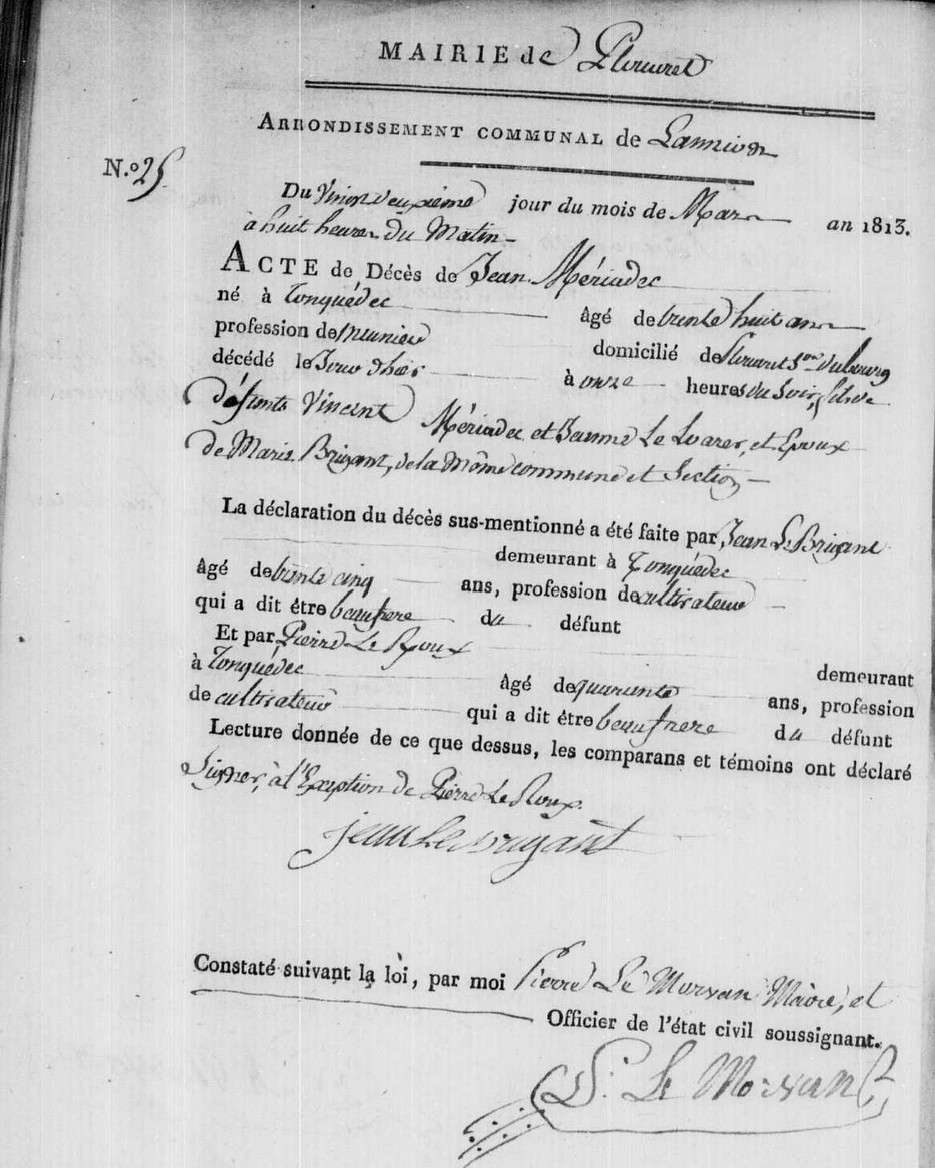 MAIRIE de Plouaret
ARRONDISSEMENT COMMUNAL de Lannion
N.º 25
Du Vingt deuxième jour du mois de Mars an 1813.
à huit heures du Matin
ACTE de Décès de Jean Mériadec
né à Tonquédec âgé de trente huit ans
profession de meunier domicilié de Plouaret S.on du bourg
décédé le Jour d'hier à onze heures du Soir, fils de
défunts Vincent Mériadec et Jeanne Le Loarer, et Epoux
de Marie Brigant, de la même commune et Section
La déclaration du décès sus-mentionné a été faite par Jean Le Brigant
demeurant à Tonquédec
âgé de trente cinq ans, profession de cultivateur
qui a dit être beaufrere du défunt
Et par Pierre Le Roux demeurant
à Tonquédec âgé de quarante ans, profession
de cultivateur qui a dit être beaufrere du défunt
Lecture donnée de ce que dessus, les comparans et témoins ont déclaré
Signer, à l'Exeption de Pierre Le Roux.
jean Le brigant
Constaté suivant la loi, par moi Pierre Le Morvan Maire, et
Officier de l'état civil soussignant.
P. Le Morvan